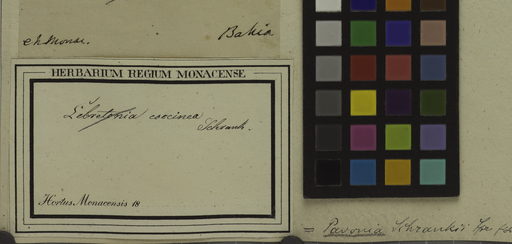 ch. Monac. Bahia
HERBARIUM REGIUM MONACENSE
Lebretonia coccinea
Schrank.
Hortus Monacensis 18
= Pavonia Schrankii Spr